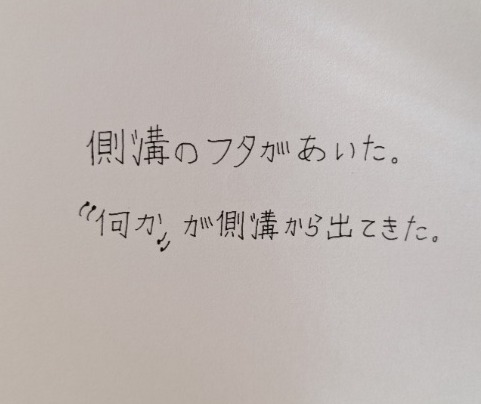 側溝のフタがあいた。
〝何か〟が側溝から出てきた。